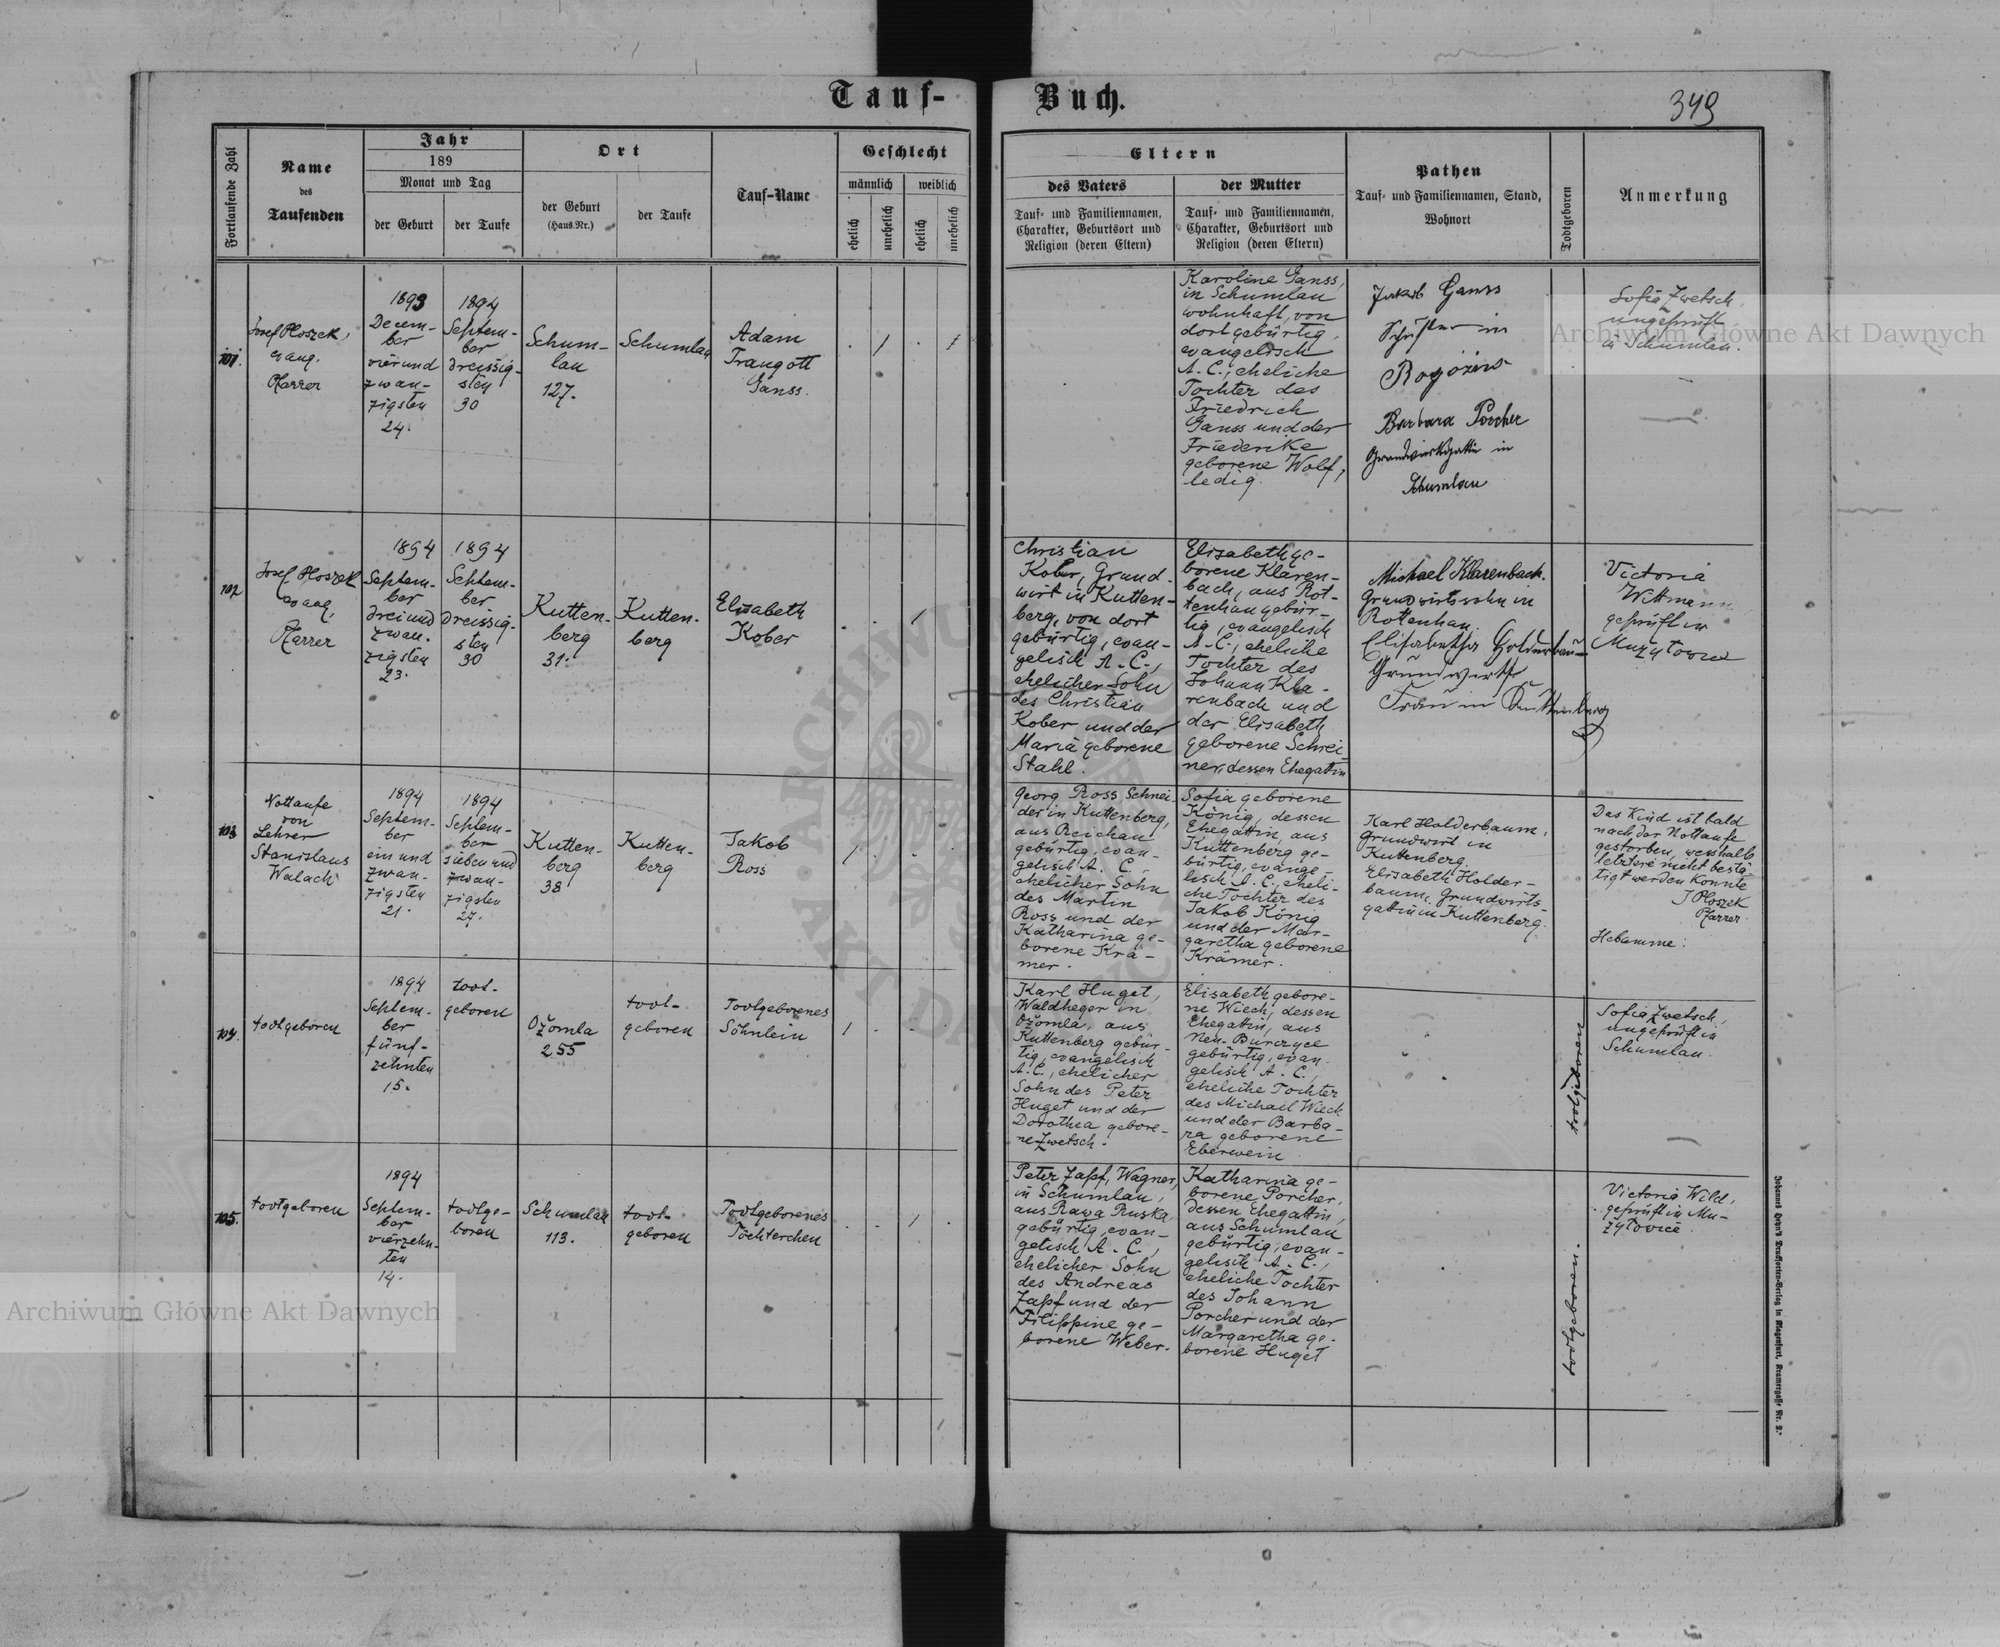 Tauf-Buch.
349
Fortlaufende Zahl
Name
des
Taufenden
Jahr
189
Monat und Tag
der Geburt
der Taufe
Ort
der Geburt
(Haus-Nr.)
der Taufe
Tauf-Name
Geschlecht
männlich
weiblich
ehelich
unehelich
ehelich
unehelich
Eltern
des Vaters
Tauf- und Familiennamen,
Charakter, Geburtsort und
Religion (deren Eltern)
der Mutter
Tauf- und Familiennamen,
Charakter, Geburtsort und
Religion (deren Eltern)
Pathen
Tauf- und Familiennamen, Stand,
Wohnort
Todtgeboren
Anmerkung
101.
Josef Ploszek,
evang.
Pfarrer
1893
Decem-
ber
vierund
zwan-
zigsten
24.
1894
Septem-
ber
dreissig-
sten
30
Schum-
lau
127.
Schumlau
Adam
Traugott
Ganss.
Karoline Ganss,
in Schumlau
wohnhaft, von
dort gebürtig,
evangelisch
A. C., eheliche
Tochter des
Friedrich
Ganss und der
Friederike
geborene Wolf,
ledig.
Jakob Ganss
in
Barbara Porcher
Grundwirthgattin in
Schumlau
Sofia Zwetsch,
ungeprüft
in Schumlau.
102
Josef Ploszek
evang.
Pfarrer
1894
Septem-
ber
dreiund
zwan-
zigsten
23.
1894
Septem-
ber
dreissig-
sten
30
Kutten-
berg
31.
Kutten-
berg
Elisabeth
Kober
Christian
Kober, Grund-
wirt in Kutten-
berg, von dort
gebürtig, evan-
gelisch A. C.,
ehelicher Sohn
des Christian
Kober und der
Maria geborene
Stahl.
Elisabeth ge-
borene Klaren-
bach, aus Rot-
tenhan gebür-
tig, evangelisch
A. C., eheliche
Tochter des
Johann Kla-
renbach und
der Elisabeth
geborene Schrei
ner, dessen Ehegattin
Michael Klarenbach.
Grundwirtssohn in
Rottenhan.
Elisabetha Holderbaum
Grundwirths
Frau in Kuttenberg
Victoria
Wittmann
geprüft in
Mużyłowice
103
Nottaufe
von
Lehrer
Stanislaus
Walach
1894
Septem-
ber
ein und
zwan-
zigsten
21.
1894
Septem-
ber
sieben und
zwan-
zigsten
27.
Kutten-
berg
38
Kutten-
berg
Jakob
Ross
Georg Ross, Schnei-
der in Kuttenberg,
aus Reichau
gebürtig, evan-
gelisch A. C.,
ehelicher Sohn
des Martin
Ross und der
Katharina ge-
borene Krä-
mer.
Sofia geborene
König, dessen
Ehegattin, aus
Kuttenberg ge-
bürtig, evange-
lisch A. C., eheli-
che Tochter des
Jakob König
und der Mar-
garetha geborene
Krämer.
Karl Holderbaum,
Grundwirt in
Kuttenberg.
Elisabeth Holder-
baum, Grundwirts-
gattin in Kuttenberg.
Das Kind ist bald
nach der Nottaufe
gestorben, weshalb
letztere nicht bestä-
tigt werden konnte
J Ploszek
Pfarrer.
Hebamme:
104.
todtgeboren
1894
Septem-
ber
fünf-
zehnten
15.
todt-
geboren
Ożomla
255
todt-
geboren
Todtgeborenes
Söhnlein
Karl Huget,
Waldheger in
Ożomla, aus
Kuttenberg gebür-
tig, evangelisch
A. C., ehelicher
Sohn des Peter
Huget und der
Dorothea gebore-
ne Zwetsch.
Elisabeth gebore-
ne Wiech, dessen
Ehegattin, aus
Neu-Burczyce
gebürtig, evan-
gelisch A. C.,
eheliche Tochter
des Michael Wiech
und der Barba-
ra geborene
Eberwein
todtgeboren
Sofia Zwetsch,
ungeprüft in
Schumlau.
105.
todtgeboren
1894
Septem-
ber
vierzehn-
ten
14.
todtge-
boren
Schumlau
113.
todt-
geboren
Todtgeborenes
Töchterchen
Peter Zapf, Wagner,
in Schumlau,
aus Rawa Ruska
gebürtig, evan-
gelisch A. C.,
ehelicher Sohn
des Andreas
Zapf und der
Filippine ge-
borene Weber.
Katharina ge-
borene Porcher,
dessen Ehegattin,
aus Schumlau
gebürtig, evan-
gelisch A. C.,
eheliche Tochter
des Johann
Porcher und der
Margaretha ge-
borene Huget
todtgeboren.
Victoria Wild,
geprüft in Mu-
żyłowice
Johannes Heyn's Drucksorten-Verlag in Klagenfurt, Kramergasse Nr. 2.
Archiwum Główne Akt Dawnych
Archiwum Główne Akt Dawnych